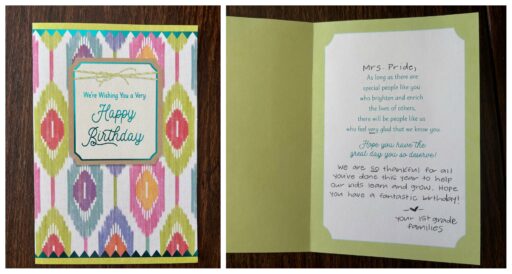 We're Wishing You a Very
Happy
Birthday
Mrs. Pride,
As long as there are
special people like you
who brighten and enrich
the lives of others,
there will be people like us
who feel very glad that we know you.
Hope you have the
great day you so deserve!
We are so thankful for all
you've done this year to help
our kids learn and grow. Hope
you have a fantastic birthday!
Your 1st grade
families